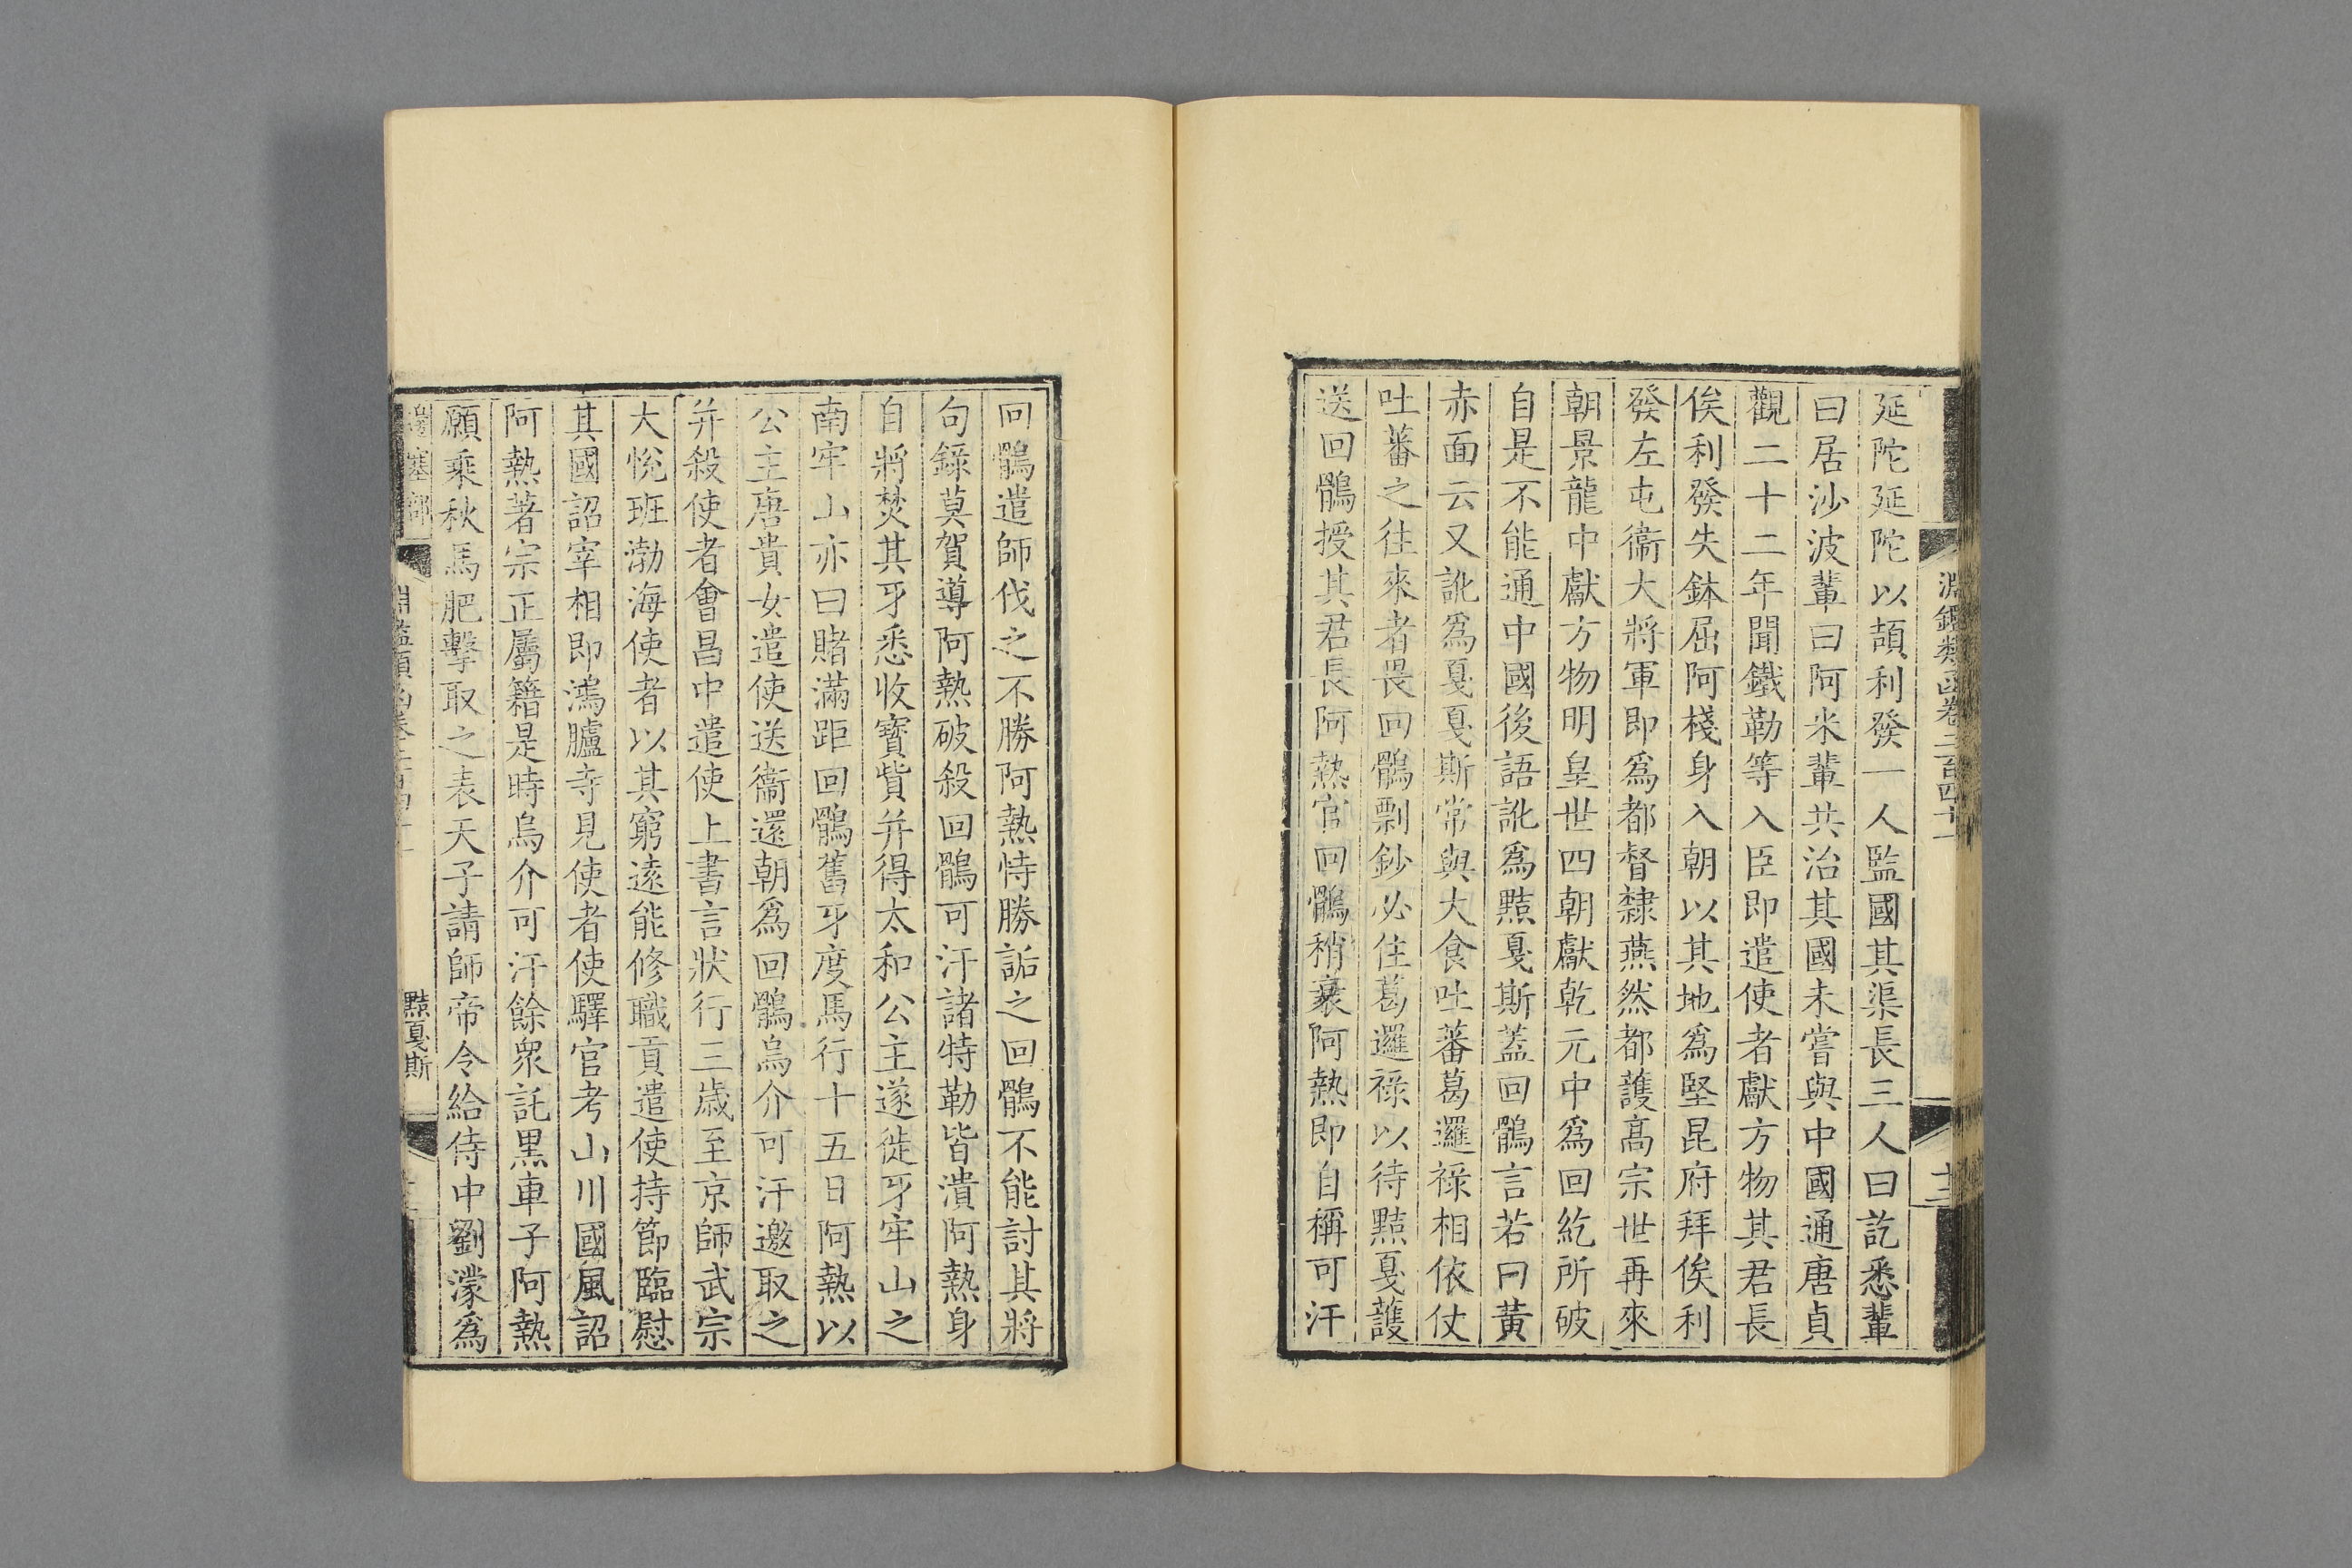 淵鑑類函卷二百四十一
十二
延陀延陀以頡利發一人監國其渠長三人曰訖悉輩
曰居沙波輩曰阿米輩共治其國未嘗與中國通唐貞
觀二十二年聞鐵勒等入臣即遣使者獻方物其君長
俟利發失鉢屈阿棧身入朝以其地爲堅昆府拜俟利
發左屯衞大將軍即爲都督隸燕然都護高宗世再來
朝景龍中獻方物明皇世四朝獻乾元中爲回紇所破
自是不能通中國後語訛爲黠戛斯蓋回鶻言若曰黃
赤面云又訛爲戛戛斯常與大食吐蕃葛邏祿相依仗
吐蕃之往來者畏回鶻剽鈔必住葛邏祿以待黠戛護
送回鶻授其君長阿熱官回鶻稍衰阿熱即自稱可汗
回鶻遣師伐之不勝阿熱恃勝詬之回鶻不能討其將
句錄莫賀導阿熱破殺回鶻可汗諸特勒皆潰阿熱身
自將焚其牙悉收寶貲并得太和公主遂徙牙牢山之
南牢山亦曰賭滿距回鶻舊牙度馬行十五日阿熱以
公主唐貴女遣使送衞還朝爲回鶻烏介可汗邀取之
并殺使者會昌中遣使上書言狀行三歲至京師武宗
大悅班渤海使者以其窮遠能修職貢遣使持節臨慰
其國詔宰相即鴻臚寺見使者使驛官考山川國風詔
阿熱著宗正屬籍是時烏介可汗餘衆託黑車子阿熱
願乘秋馬肥擊取之表天子請師帝令給侍中劉濛爲
邊塞部
淵鑑類函卷二百四十一
黠戛斯